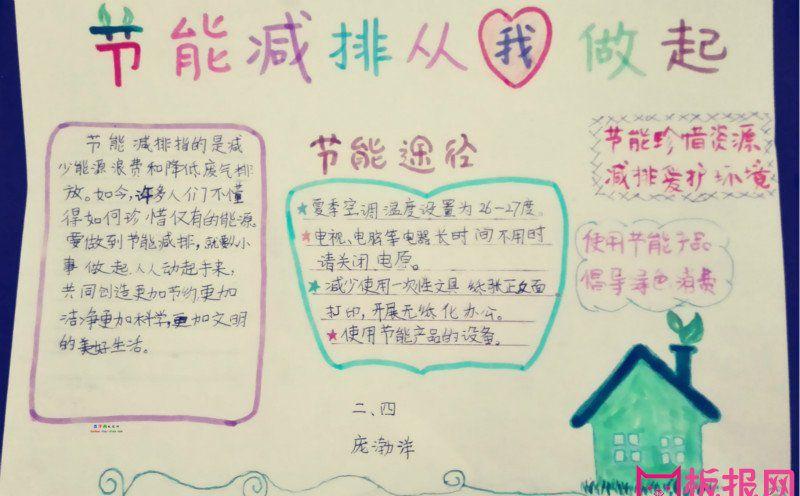 节能减排从我做起
节能减排指的是减
少能源浪费和降低废气排
放。如今,许多人们不懂
得如何珍惜仅有的能源。
要做到节能减排,就要从小
事做起,人人动起手来,
共同创造更加节约,更加
洁净更加科学,更加文明
的美好生活。
节能途径
★夏季空调温度设置为26-27度。
★电视、电脑等电器长时间不用时
请关闭电原。
★减少使用一次性文具纸张正反面
打印,开展无纸化办公。
★使用节能产品的设备。
二、四
庞渤洋
节能珍惜资源
减排爱护环境
使用节能产品
倡导绿色消费
板报网